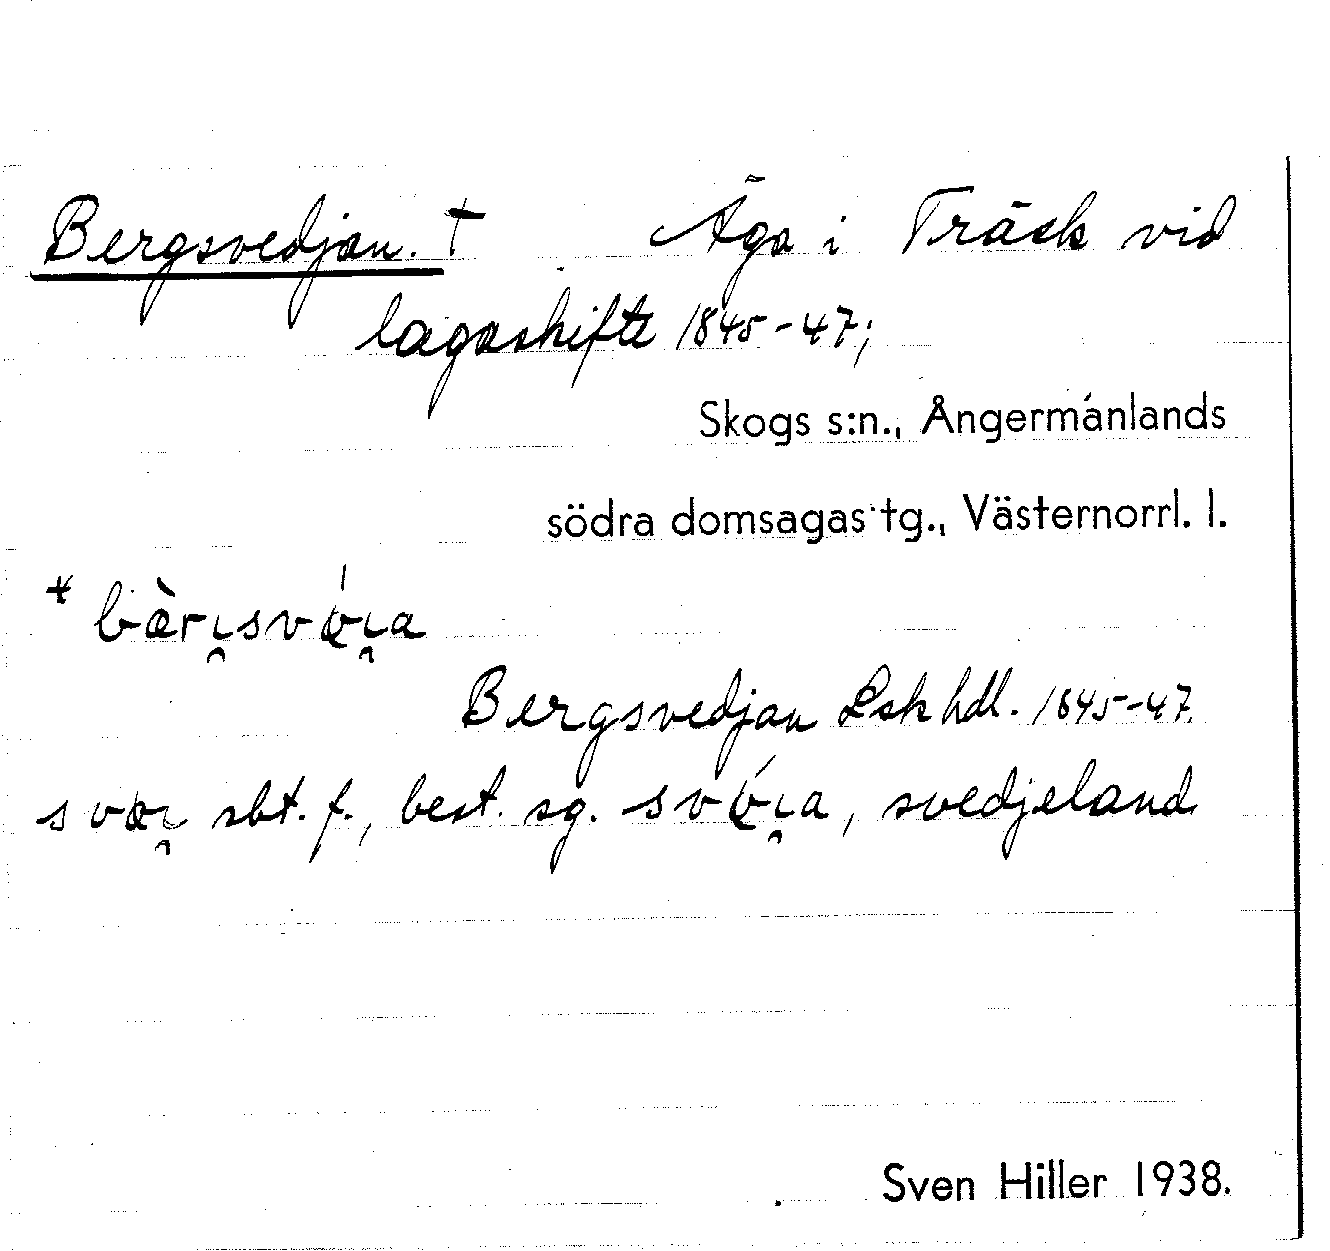 Bergsvedjan. † Äga i Träsk vid
lagaskifte 1845-47;
Skogs s:n., Ångermanlands
södra domsagas tg., Västernorrl. l.
Bergsvedjan Lsk hdl. 1845-47.
sbt. f., best. sg. , svedjeland
Sven Hiller 1938.